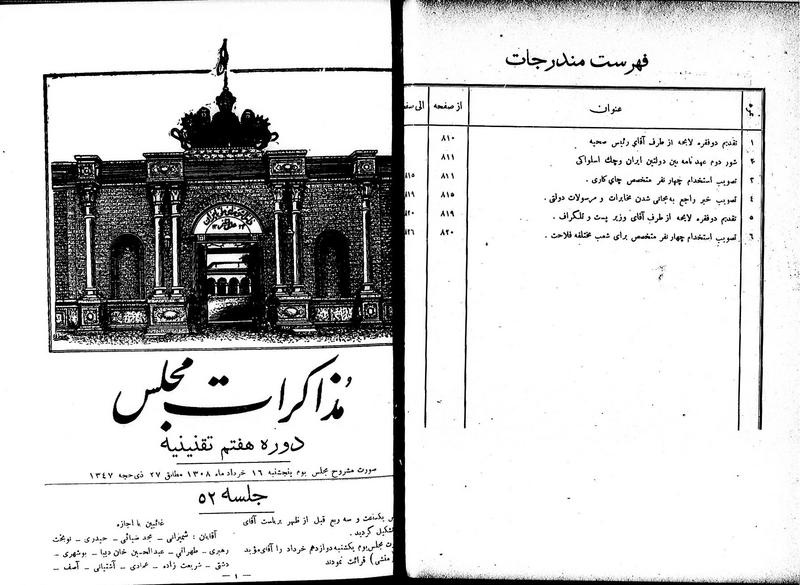 فهرست مندرجات
عنوان از صفحه الی
۱ تقدیم دوفقره لایحه از طرف آقای رئیس صحیه ۸۱۰
۲ شور دوم عهدنامه بین دولتین ایران وچك اسلواکی ۸۱۱
۳ تصویب استخدام چهار نفر متخصص چای کاری . ۸۱۱
۴ تصویب خبر راجع به مجانی شدن مخابرات و مرسولات دولتی . ۸۱۵
۵ تقدیم دوفقره لایحه از طرف آقای وزیر پست و تلگراف . ۸۱۹
۶ تصویب استخدام چهار نفر متخصص برای شعب مختلفه فلاحت . ۸۲۰
مُذاکرات مجلس
دوره هفتم تقنینیه
صورت مشروح مجلس یوم پنجشنبه ۱۶ خرداد ماه ۱۳۰۸ مطابق ۲۷ ذی‌حجه ۱۳۴۷
جلسه ۵۲
یکساعت و سه ربع قبل از ظهر بریاست آقای
تشکیل گردید .
مجلس یوم یکشنبه دوازدهم خرداد را آقای مؤید
منشی ) قرائت نمودند
غائبین با اجازه
آقایان : شمیرانی ـ مجد ضیائی ـ حیدری ـ نوبخت
رهبری ـ طهرانی ـ عبدالحسین خان دیبا ـ بوشهری ـ
دشتی ـ شریعت زاده ـ عمادی ـ آشتیانی ـ آصف ـ
ـ ۱ ـ